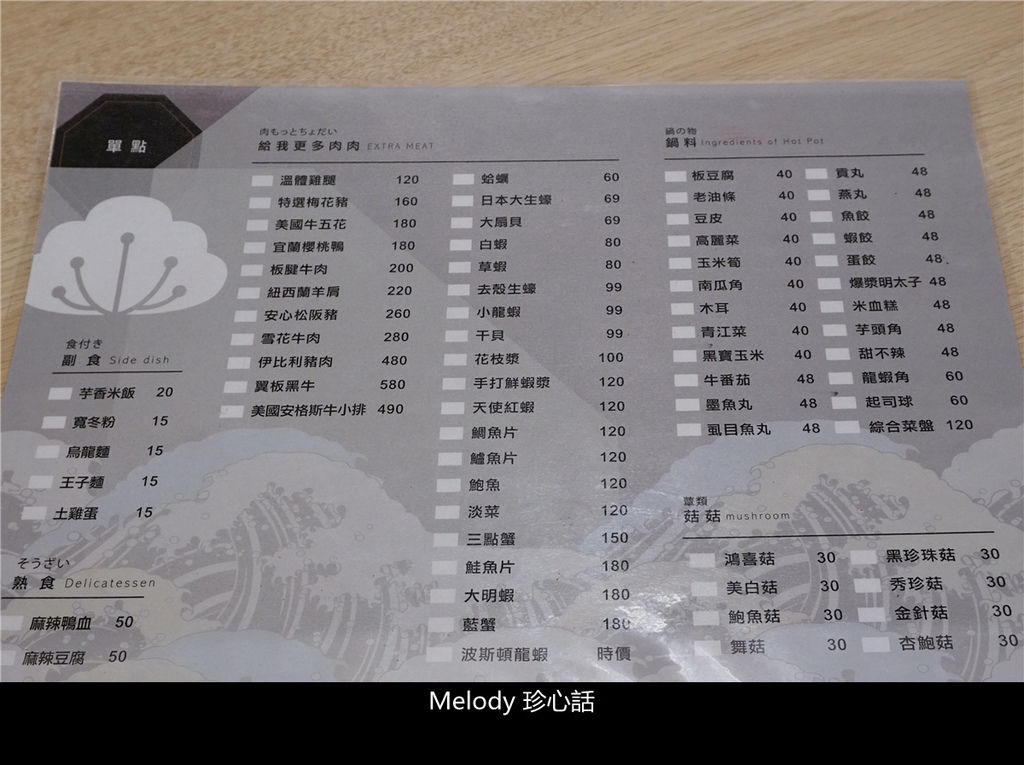 單點
食付き
副食 Side dish
芋香米飯 20
寬冬粉 15
烏龍麵 15
王子麵 15
土雞蛋 15
そうざい
熟食 Delicatessen
麻辣鴨血 50
麻辣豆腐 50
肉もっとちょだい
給我更多肉肉 EXTRA MEAT
溫體雞腿 120
特選梅花豬 160
美國牛五花 180
宜蘭櫻桃鴨 180
板腱牛肉 200
紐西蘭羊肩 220
安心松阪豬 260
雪花牛肉 280
伊比利豬肉 480
翼板黑牛 580
美國安格斯牛小排 490
蛤蠣 60
日本大生蠔 69
大扇貝 69
白蝦 80
草蝦 80
去殼生蠔 99
小龍蝦 99
干貝 99
花枝漿 100
手打鮮蝦漿 120
天使紅蝦 120
鯛魚片 120
鱸魚片 120
鮑魚 120
淡菜 120
三點蟹 150
鮭魚片 180
大明蝦 180
藍蟹 180
波斯頓龍蝦 時價
鍋の物
鍋料 Ingredients of Hot Pot
板豆腐 40
老油條 40
豆皮 40
高麗菜 40
玉米筍 40
南瓜角 40
木耳 40
青江菜 40
黑寶玉米 40
牛番茄 48
墨魚丸 48
虱目魚丸 48
貢丸 48
燕丸 48
魚餃 48
蝦餃 48
蛋餃 48
爆漿明太子 48
米血糕 48
芋頭角 48
甜不辣 48
龍蝦角 60
起司球 60
綜合菜盤 120
蕈類
菇菇 mushroom
鴻喜菇 30
美白菇 30
鮑魚菇 30
舞菇 30
黑珍珠菇 30
秀珍菇 30
金針菇 30
杏鮑菇 30
Melody 珍心話